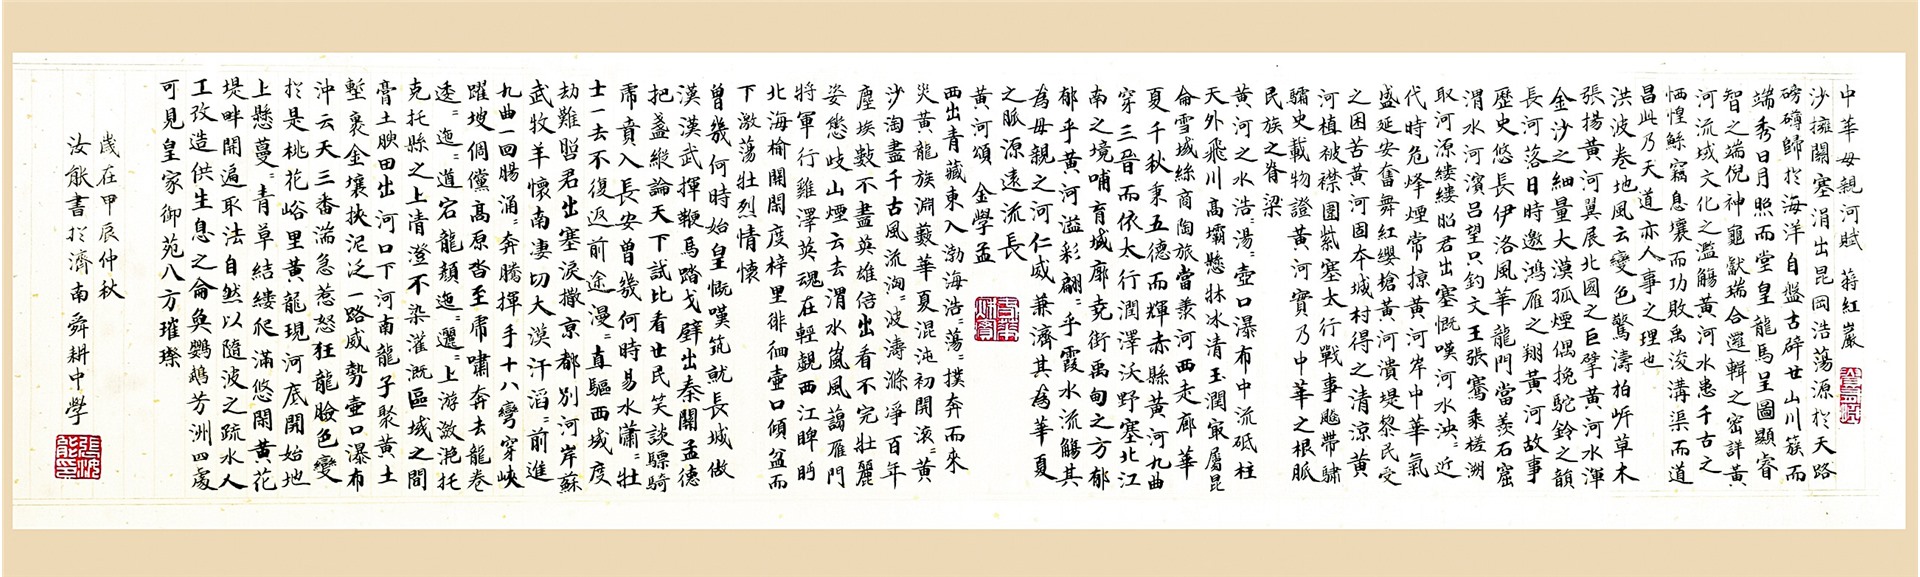 中華母親河賦 蔣紅巖
沙擁關塞涓出昆岡浩蕩源於天路
磅礴歸於海洋自盤古辟世山川簇而
端秀日月照而堂皇龍馬呈圖顯睿
智之端倪神龜獻瑞合邏輯之密詳黃
河流域文化之濫觴黃河水患千古之
恓惶鯀竊息壤而功敗禹浚溝渠而道
昌此乃天道亦人事之理也
洪波卷地風云變色驚濤拍岍草木
張揚黃河翼展北國之巨擘黃河水渾
金沙之細量大漠孤煙偶挽駝鈴之韻
長河落日時邀鴻雁之翔黃河故事
歷史悠長伊洛風華龍門當羨石窟
渭水河濱呂望只釣文王張騫乘槎溯
取河源縷縷昭君出塞慨嘆河水泱〻近
代時危烽煙常掠黃河岸中華氣
盛延安奮舞紅纓槍黃河潰堤黎民受
之困苦黃河固本城村得之清涼黃
河植被襟圍紫塞太行戰事飚帶驌
驦史載物證黃河實乃中華之根脈
民族之脊梁
黃河之水浩〻湯〻壺口瀑布中流砥柱
天外飛川高壩懸牀冰清玉潤冣屬昆
侖雪域絲商陶旅當羨河西走廊華
夏千秋秉五德而輝赤縣黃河九曲
穿三晉而依太行潤澤沃野塞北江
南之境哺育城廓堯街禹甸之方郁
郁乎黃河溢彩翩〻乎霞水流觴其
為母親之河仁威兼濟其為華夏
之脈源遠流長
黃河頌 金學孟
西出青藏東入渤海浩〻蕩〻撲奔而來
炎黃龍族淵藪華夏混沌初開滾〻黃
沙淘盡千古風流洶〻波濤滌淨百年
塵埃數不盡英雄倍出看不完壯麗
姿態岐山煙云去渭水嵐風藹雁門
將軍行雞澤英魂在輕覷西江睥眄
北海榆關開度梓里徘徊壺口傾盆而
下激蕩壯烈情懷
曾幾何時始皇慨嘆筑就長城做
漢漢武揮鞭馬踏戈壁出秦關孟德
把盞縱論天下試比看世民笑談驃騎
虎賁入長安曾幾何時易水瀟〻壯
士一去不復返前途漫〻直驅西域度
劫難昭君出塞淚撒京都別河岸蘇
武牧羊懷南淒切大漠汗滔〻前進
九曲一回腸涌奔騰揮手十八彎穿峽
躍坡倜儻高原沓至虎嘯奔去龍卷
逶〻迤〻道宕龍顏迤〻邐〻上游激滟托
克托縣之上清澄不染灌溉區域之間
膏土腴田出河口下河南龍子聚黃土
塹裹金壤挾泥泛一路威勢壺口瀑布
沖云天三番湍急惹怒狂龍臉色變
於是桃花峪里黃龍現河底開始地
上懸蔓〻青草結縷爬滿悠閑黃花
堤畔開遍取法自然以隨波之疏水人
工改造供生息之侖奐鸚鵡芳洲四處
可見皇家御苑八方璀璨
歲在甲辰仲秋
汝能書於濟南舜耕中學